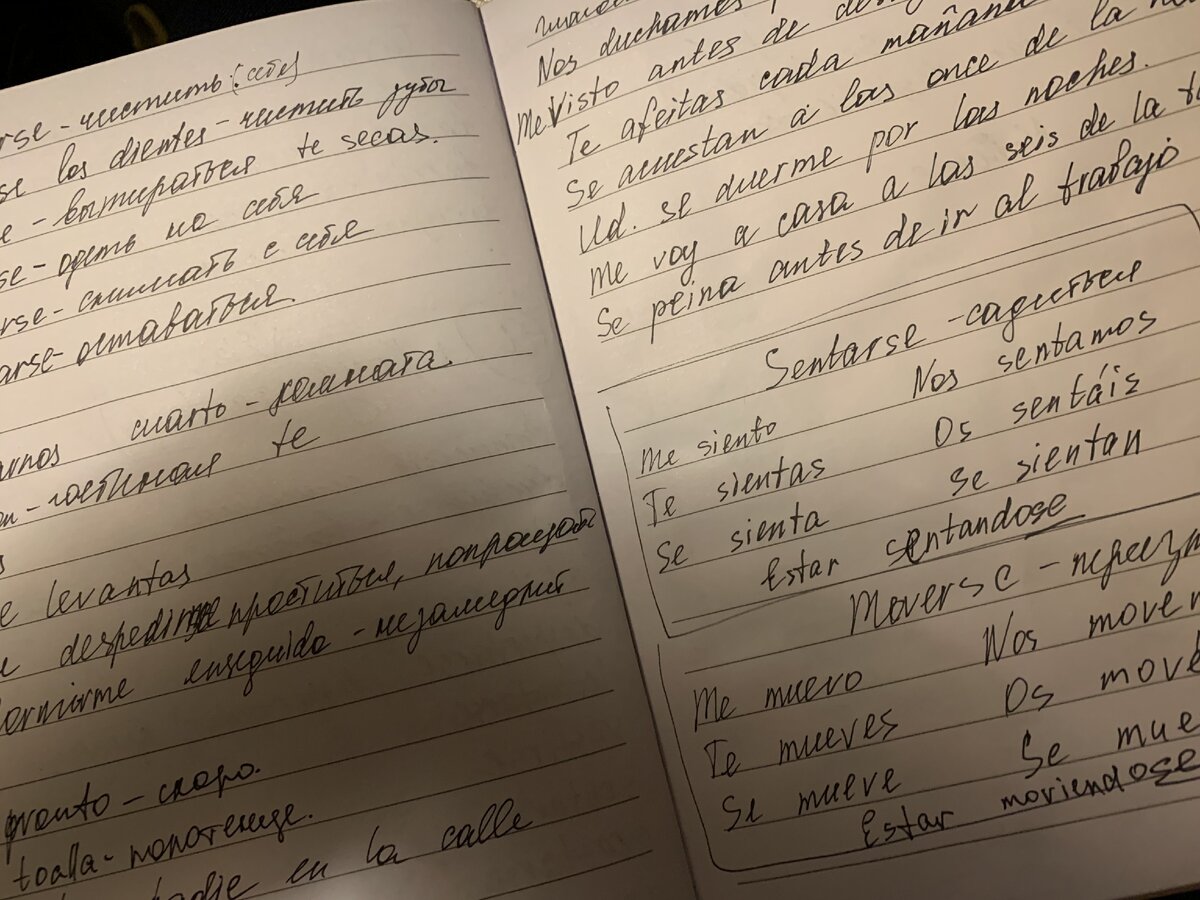 rse - чистить (себя)
se los dientes - чистить зубы
e - вытираться te secas.
se - одеть на себя
rse - снимать с себя
arse - оставаться.
rnos cuarto - комната.
on - гостиная te
s
e levantas
despedirse проститься, попрощать
dormirme enseguido - незамедлит
pronto - скоро.
toalla - полотенце.
nadie en la calle
Nos duchamos
Me visto antes de
Te afeitas cada mañana
Se acuestan a las once de la
Ud. se duerme por las noches.
Me voy a casa a las seis de la t
Se peina antes de ir al trabajo
Sentarse - садиться
Me siento Nos sentamos
Te sientas Os sentáis
Se sienta Se sientan
Estar sentandose
Moverse - переезж
Me muevo Nos movem
Te mueves Os mové
Se mueve Se mue
Estar moviendose